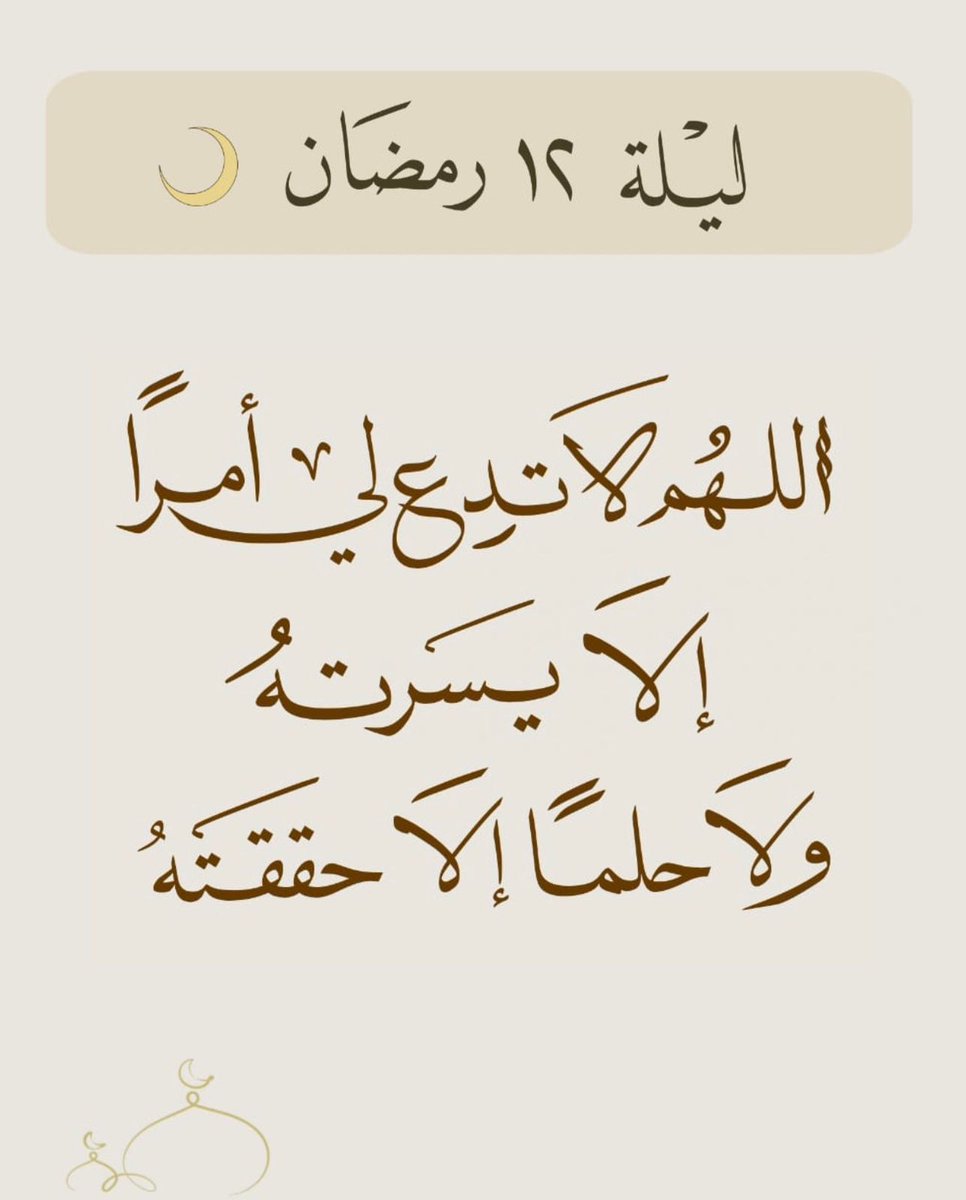 ليْلة ١٢ رمضَان
اللهُم لاَ تدِع لي أمراً
إلاَ يسَرتهُ
ولاَ حلماً إلاَ حققتَهُ